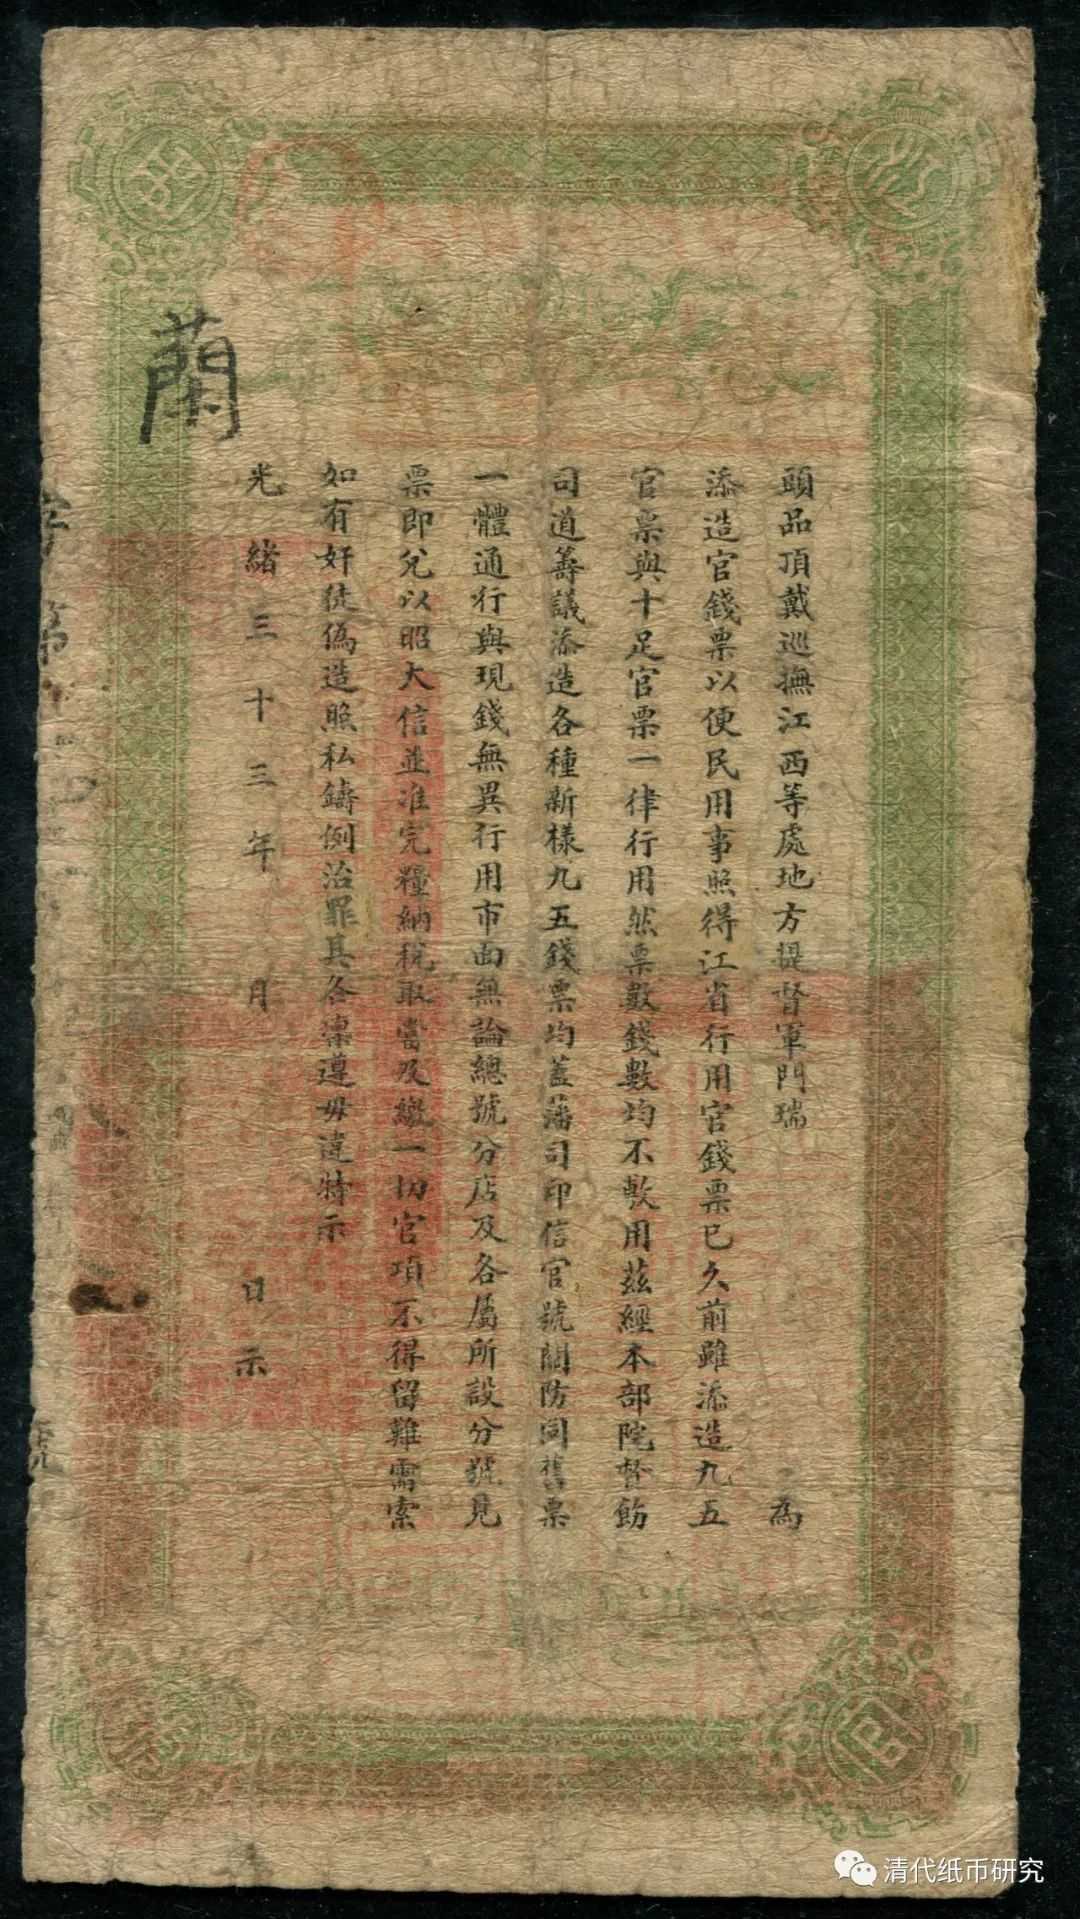 江
西
官
頭品頂戴巡撫江西等處地方提督軍門瑞 為
添造官錢票以便民用事照得江省行用官錢票已久前雖添造九五
官票與十足官票一律行用然票數錢數均不敷用茲經本部院督飭
司道籌議添造各種新樣九五錢票均蓋藩司印信官號關防同舊票
一體通行與現錢無異行用市面無論總號分店及各屬所設分號見
票即兌以昭大信並准完糧納稅取當及繳一切官項不得留難需索
如有奸徒偽造照私鑄例治罪其各凜遵毋違特示
光緒三十三年 月 日示
蘭
清代纸币研究